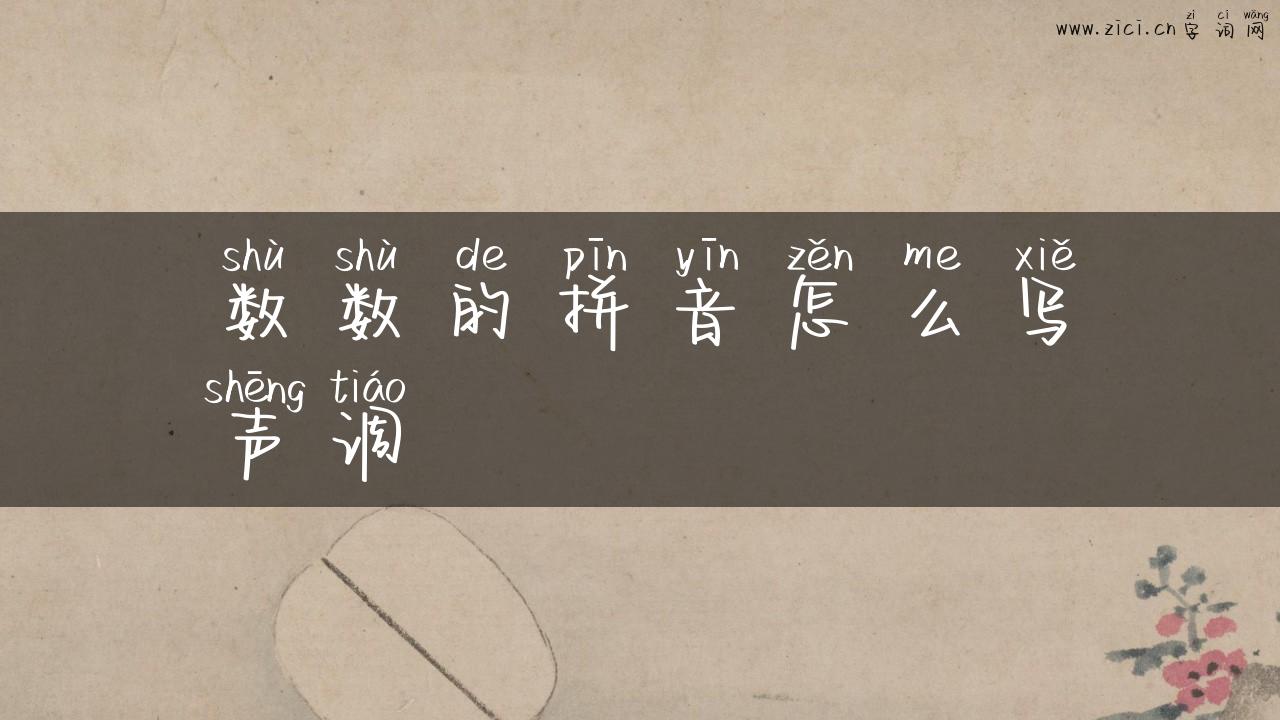 zì cí wǎng
www.zici.cn 字词网
shù shù de pīn yīn zěn me xiě
数数的拼音怎么写
shēng tiáo
声调